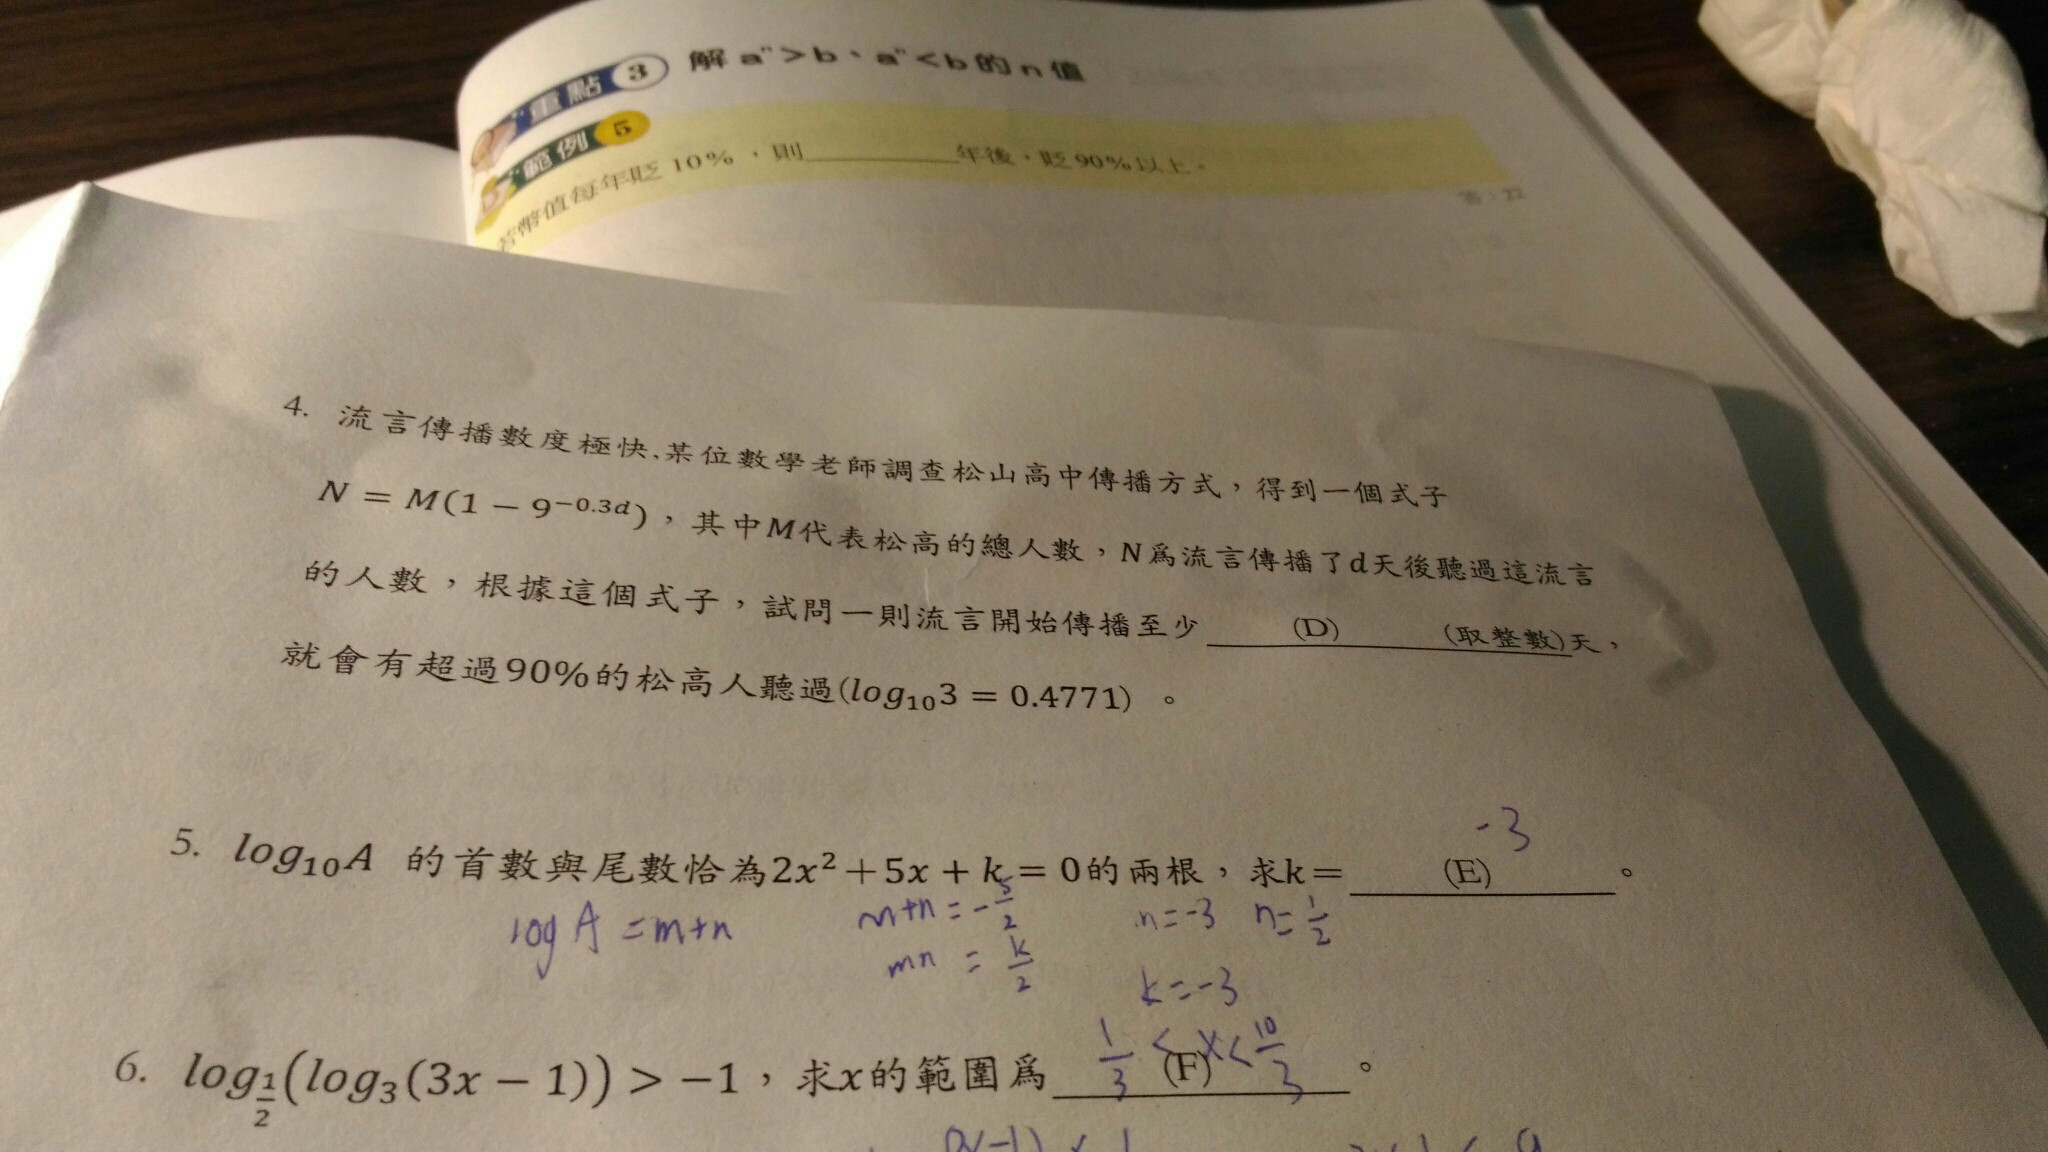 重點 3 解 aⁿ>b、aⁿ<b的n值
範例 5
若幣值每年貶 10%,則______年後,貶90%以上。
答:22
4. 流言傳播數度極快.某位數學老師調查松山高中傳播方式,得到一個式子
N = M(1 − 9^{−0.3d}),其中M代表松高的總人數,N爲流言傳播了d天後聽過這流言
的人數,根據這個式子,試問一則流言開始傳播至少 (D) (取整數)天,
就會有超過90%的松高人聽過(log₁₀3 = 0.4771) 。
-3
5. log₁₀A 的首數與尾數恰為2x²+5x+k=0的兩根,求k= (E) 。
log A = m+n m+n = -5/2 n=-3 n=1/2
mn = k/2 k=-3
1/3 < x < 10/3
6. log_{1/2}(log₃(3x − 1)) > −1,求x的範圍爲 (F) 。